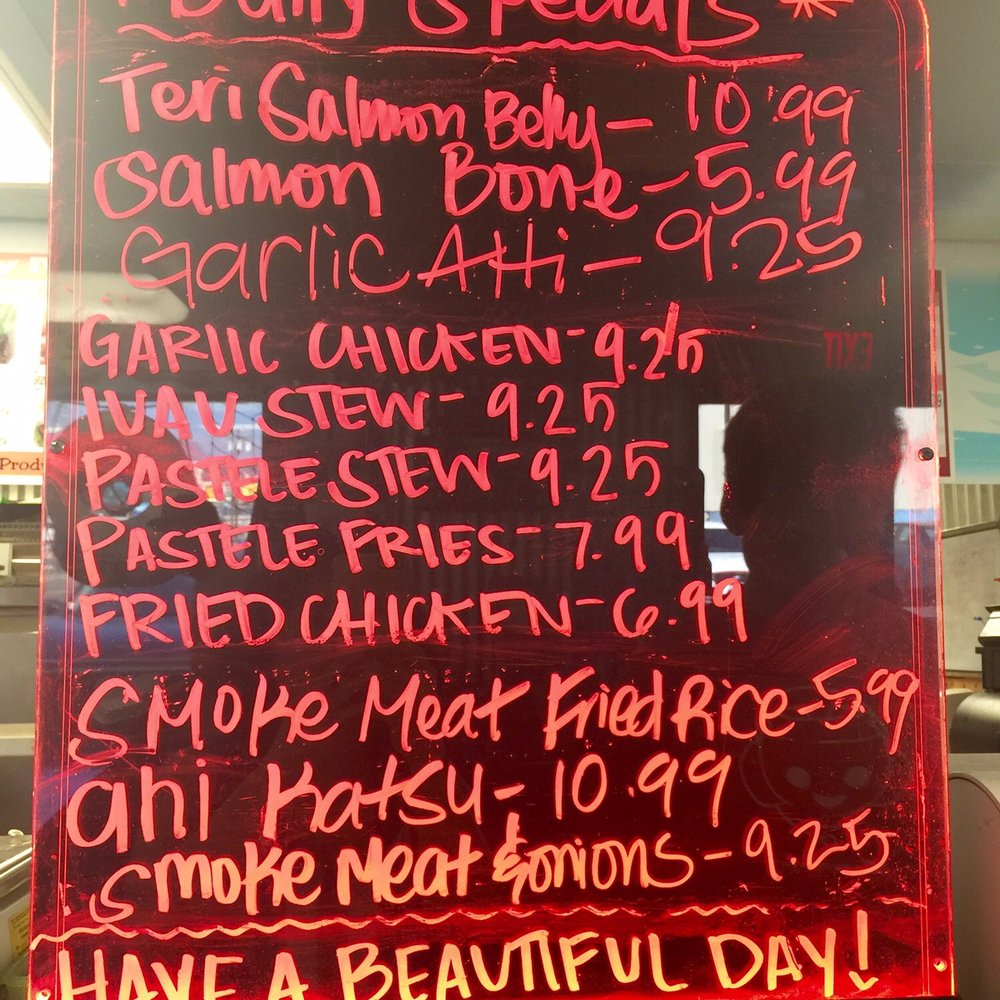 Daily Specials
Teri Salmon Belly - 10.99
Salmon Bone - 5.99
Garlic AHi - 9.25
GARlIC CHICKEN - 9.25
lUAU STEW - 9.25
PASTELE STEW - 9.25
PASTELE FRIES - 7.99
FRIED CHICKEN - 6.99
Smoke Meat Fried Rice - 5.99
ahi Katsu - 10.99
Smoke Meat & onions - 9.25
HAVE A BEAUTIFUL DAY!
EXIT
Prod